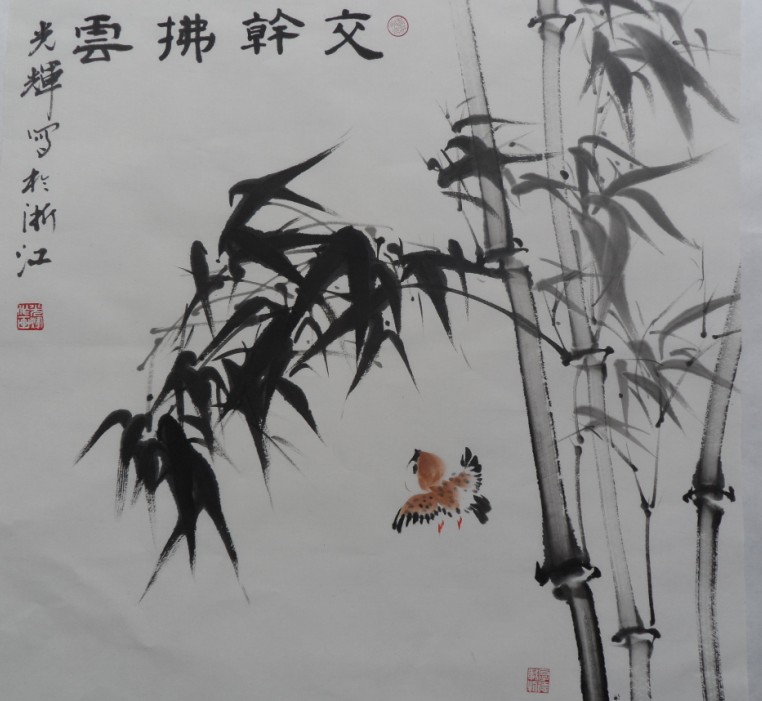 交幹拂雲
光輝寫於浙江